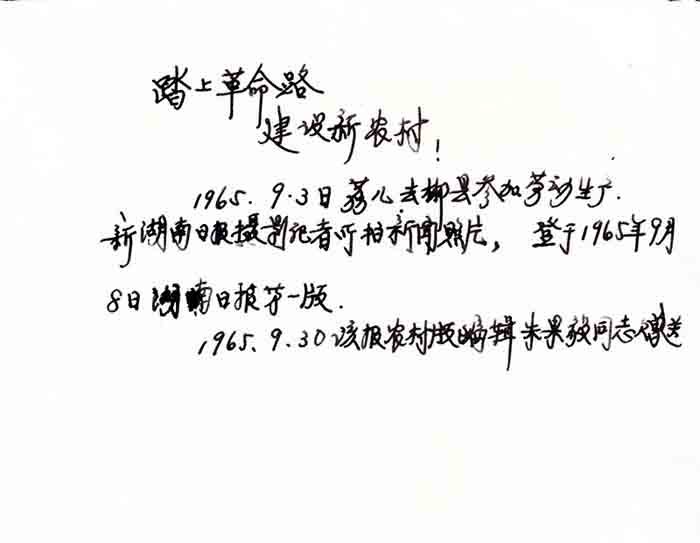 踏上革命路
建设新农村！
1965.9.3日荔儿去郴县参加劳动生产.
新湖南日报摄影记者所拍新闻照片，登于1965年9月
8日湖南日报第一版.
1965.9.30该报农村版编辑朱果毅同志送